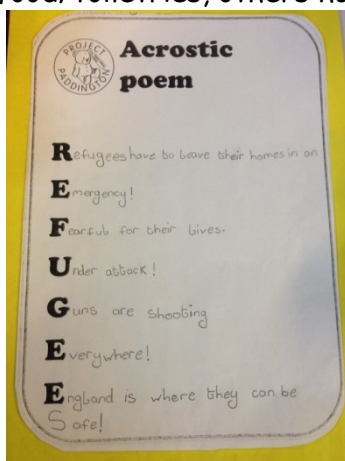 PROJECT PADDINGTON
Acrostic
poem
Refugees have to leave their homes in an
Emergency!
Fearful for their lives.
Under attack!
Guns are shooting
Everywhere!
England is where they can be
Safe!